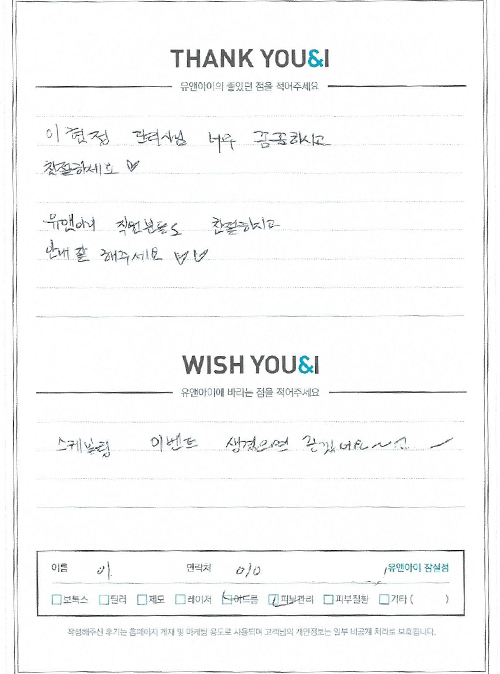 THANK YOU&I
유앤아이의 좋았던 점을 적어주세요
이현정 관리사님 너무 꼼꼼하시고
친절하세요 ♡
유앤아이 직원분들도 친절하시고
안내 잘 해주세요 ♡♡
WISH YOU&I
유앤아이에 바라는 점을 적어주세요
스케일링 이벤트 생겼으면 좋겠네요~
이름 이 연락처 010 유앤아이 잠실점
보톡스 필러 제모 레이저 여드름 피부관리 피부질환 기타 ( )
작성해주신 후기는 홈페이지 게재 및 마케팅 용도로 사용되며 고객님의 개인정보는 일부 비공개 처리로 보호됩니다.